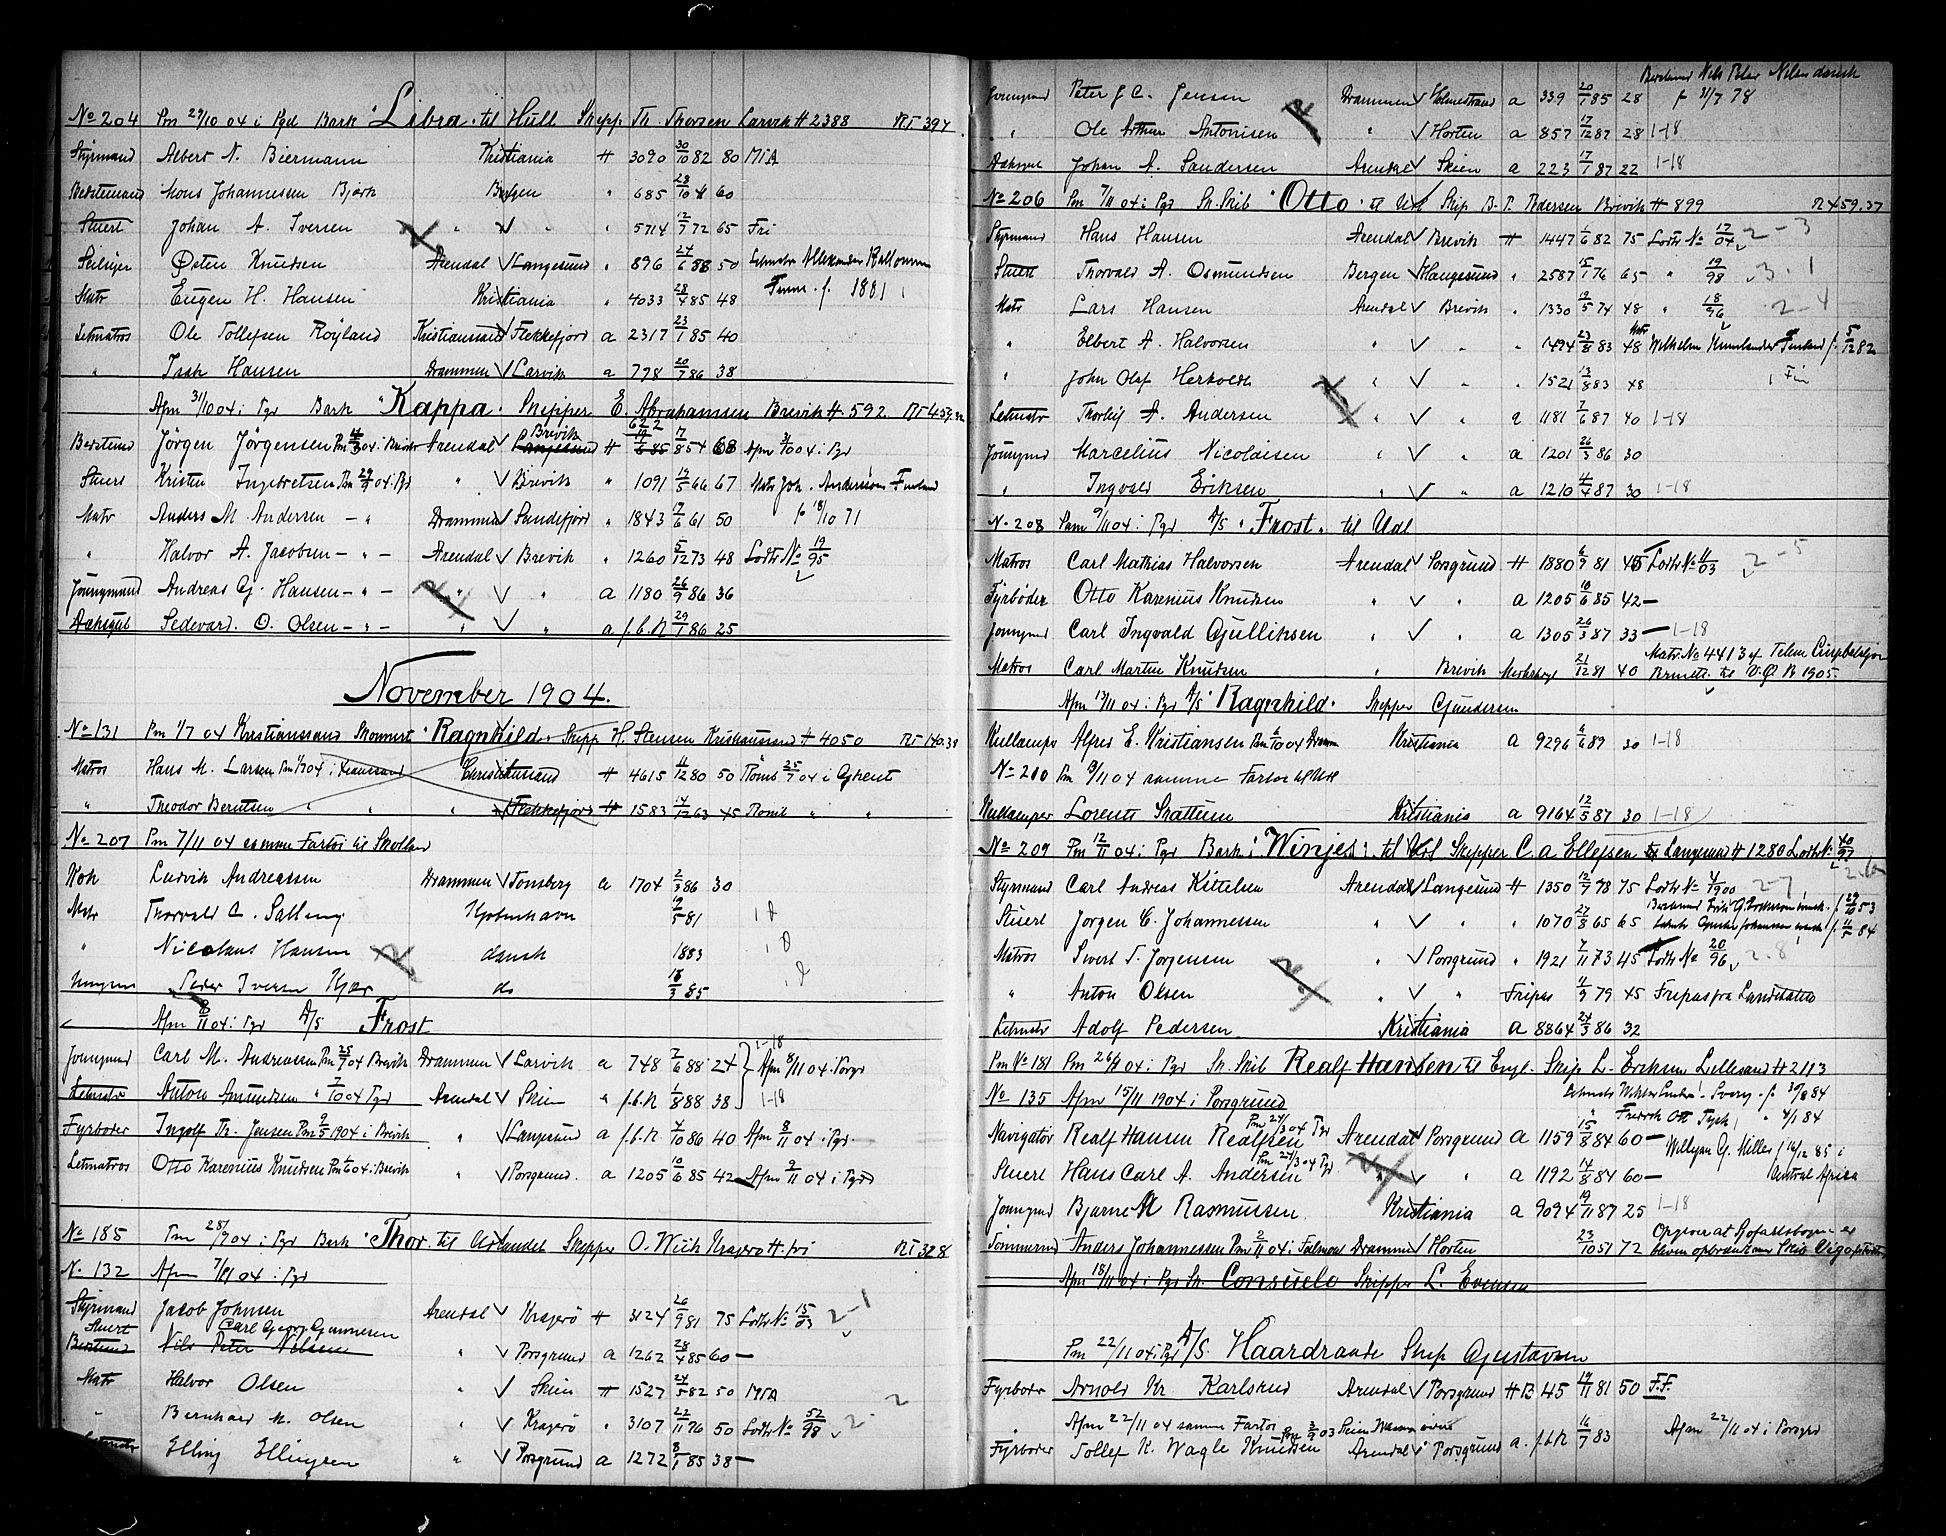 No 204 Pm 29/10 04 i Pgd Bark "Libra" til Hull Skipp. Th. Thorsen Larvik H 2388 RT 394
Styrmand Albert N. Biermann Kristiania H 3090 30/10 82 80 MIA
Bestemand Mons Johannessen Bjørk Bergen " 685 28/10 60
Stuert Johan A. Iversen " " " 5714 12/9 72 65 Fri
Seilsyer Østen Knudsen Arendal Langesund " 896 24/6 88 50 Letmatr
Matr Eugen H. Hansen Kristiania " 4033 28/4 85 48 Finne f. 1881
Letmatros Ole Tollefsen Röyland Kristianssand Flekkefjord a 2317 23/1 85 40
" Isak Hansen Drammen Larvik a 778 20/7 86 38
Afm 31/10 04 i Pgr Bark "Kappa" Skipper E. Abrahamsen Brevik H 592
Bestmd Jörgen Jörgensen Arendal Brevik H 622 17/8 54 68 Afm 31/10 04 i Pgr
Stuert Kristen Ingebretsen Pm 29/9 04 i Pgr " Brevik " 1091 19/5 66 67 Matr Joh. Anderssons Finland
Matr Anders M Andersen - " Drammen Sandefjord " 1843 17/6 61 50 f 18/10 71
" Halvor A. Jacobsen - " - Arendal Brevik " 1260 5/12 73 48 Lodts No 19/95
Jöungmand Andreas G. Hansen - " - " " a 1180 26/9 86 36
Dæksgut Sedevard. O. Olsen - " - " " a f.b.R 29/1 86 25
November 1904.
No 131 Pm 1/7 04 Kristianssand Skonnert "Ragnhild" Skipp H. Stensen Kristianssand H 4050
Matros Hans M. Larsen Christianssand H 4615 11/12 80 50 Römt 25/7 04 i Ghent
" Theodor Berntsen " " " Flekkefjord H 1583 14/12 63 45 Römt " "
No 207 Pm 7/11 04 samme Fartöi til Skotland
Kok Ludvik Andreassen Drammen Tonsberg a 1704 2/3 86 30
Matr Thorvald C. Kjöbenhavn 19/5 81
" Nicolaus Hansen dansk 1883
Peder Iversen Kjær do 18/3 85
Afm 8/11 04 i Pgr D/S Frost
Joungmd Carl M. Andreassen Pm 25/7 04 Brevik Drammen Larvik a 748 7/6 88 24 Afm 8/11 04 i Porsgr 1-18
Letmatr Anton Amundsen " 7/10 04 Pgr Arendal Skien " f.b.R 1/8 88 38 1-18
Fyrböder Ingolf Th. Jensen Pm 9/5 1904 i Brevik " Langesund a f.b.R 4/10 86 40 Afm 8/11 04 i Pgr
Letmatros Otto Karenius Knudsen i Brevik " Porsgrund a 1205 10/6 85 42 Afm 9/11 04 i Pgr
No 185 Pm 28/9 04 i Pgr Bark "Thor" til Udlandet Skipper O. Wiik Kragerö H fri RT 328
No 132 Afm 7/11 04 i Pgr
Styrmand Jacob Johnsen Arendal Kragerö H 3124 26/9 81 75 Lodts No 15/03 2-1
Stuert Carl Georg Gunnersen
Bestmd Nils Peter Nilsen " Porsgrund a 1262 28/4 85 60 -
Matr Halvor Olsen " Skien H 1527 24/5 82 50 MIA
" Bernhard M. Olsen " Kragerö " 3107 22/11 76 50 Lodts No 52/98 2-2
Letmatr Elling Ellingsen " Porsgrund a 1272 8/1 85 38 -
Bestmd Nils Peter Nilsen dansk
Joungmd Peter J C. Jensen Drammen Holmestrand a 339 20/1 85 28 f 31/7 78
" Ole Arthur Antonisen " Horten a 857 17/12 87 28 1-18
Dæksgut Johan A. Sandersen Arendal Skien a 223 17/1 87 22 1-18
No 206 Pm 7/11 04 i Pgr Sk. Skib "Otto" til Udl Skip B. P. Pedersen Brevik H 899 R 459.37
Styrmand Hans Hansen Arendal Brevik H 1447 1/6 82 75 Lodts No 17/04 2-3
Stuert Thorvald A. Osmundsen Bergen Haugesund " 2587 15/1 76 65 " 19/98 3-1
Matr Lars Hansen Arendal Brevik " 1330 19/5 74 48 " 18/96 2-4
" Elbert A. Halvorsen " " " 1494 23/8 83 48 Matr Wilhelm Finland f. 5/12 82
" John Olaf Herkoldt " " " 1521 13/8 83 48 Fin
Letmatr Thorleif A. Andersen " " a 1181 7/6 87 40 1-18
Joungmd Marcelius Nicolaisen " " a 1201 26/3 86 30
" Ingvald Eriksen " " a 1210 4/4 87 30 1-18
No 208 Pam 9/11 04 i Pgr D/S "Frost" til Udl
Matros Carl Mathias Halvorsen Arendal Porsgrund H 1880 6/9 81 45 Lodts No 11/03 2-5
Fyrböder Otto Karenius Knudsen " " a 1205 10/6 85 42 -
Joungmd Carl Ingvald Gjulliksen " " a 1305 26/3 87 33 - 1-18
Matros Carl Martin Knudsen " Brevik 21/12 81 40 Matr. No 4413 af 1905
Afm 13/11 04 i Pgr D/S "Ragnhild" Skipper Gjundersen
Kullemper Alfred E. Kristiansen Kristiania a 9296 6/6 89 30 1-18
No 210 Pm 13/11 04 samme Fartöi til Udl
Kullemper Lorentz Skattum Kristiania a 9164 12/5 87 30 1-18
No 209 Pm 12/11 04 i Pgr Bark "Winjes" til Udl Skipper C. A Ellefsen Langesund H 1280 Lodts No 40/97
Styrmand Carl Andreas Kittelsen Arendal Langesund H 1350 12/9 78 75 Lodts No 4/1900 2-7
Stuert Jorgen C. Johannessen " " " 1070 27/8 65 65
Matros Sivert T. Jorgensen " Porsgrund " 1921 7/11 73 45 Lodts No 20/96 2.8
" Anton Olsen " " Fripas 11/9 79 45 Fripas fra Landstaten
Letmatr Adolf Pedersen Kristiania a 8864 24/3 86 32
Pm No 181 Pm 26/ 04 i Pgr Sk. Skib Realf Hansen til Engl. Skip L. Eriksen Lillesand H 2113
No 135 Afm 15/11 1904 i Porsgrund
Navigatör Realf Hansen Realfsen Pm 24/3 04 Pgr Arendal Porsgrund a 1159 15/8 84 60 -
Fredrik Ott Tysk " 4/1 84
Stuert Hans Carl A. Andersen Pm 24/3 04 Pgr " " a 1192 14/8 84 60 - Willyam G. Miller f 16/12 85 i Central Afrika
Joungmd Bjarne M Rasmussen Kristiania a 9094 19/11 87 25 1-18
Tömmermd Anders Johannessen Pm 2/11 04 i Falmout Drammen Horten 23/10 51 72 Opgiver at Sofartsbogen er bleven opbrændt
Afm 18/11 04 i Pgr Sk. Consuelo Skipper L. Evensen
Pm 22/11 04 i Pgr D/S. Haardraade Skip Gustavsen
Fyrbodr Arnold Kr Karlsrud Arendal Porsgrund H B 45 19/11 81 50 F.F.
Afm 22/11 04 samme Fartöi
Fyrboder Tollef K. Wagle Knudsen Arendal Porsgrund a. f.b.R 16/7 83 Afm 22/11 04 i Porsgrd